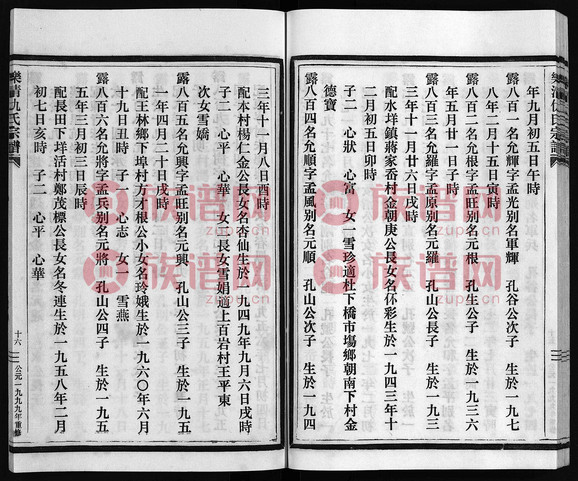 樂清仇氏宗譜
年九月初五日午時
露八百一名允輝字孟光别名軍輝　孔谷公次子　生於一九七
八年二月十五日寅時
露八百二名允根字孟旺别名元根　孔生公子　生於一九三六
年五月廿一日子時
露八百三名允羅字孟原别名元羅　孔山公長子　生於一九三
三年十一月廿六日戌時
配水垟鎮蔣家香村金朝庚公長女名伓彩生於一九四三年十
二月初五日卯時
子二　心狀　心富　女一雪珍適杜下橋市塲鄉朝南下村金
德寶
露八百四名允順字孟風别名元順　孔山公次子　生於一九四
三年十一月八日酉時
配本村楊仁金公長女名杏仙生於一九四九年九月六日戌時
子二　心平　心華　女二長女雪娟適上百岩村王平東
次女雪嬌
露八百五名允興字孟旺别名元興　孔山公三子　生於一九五
一年四月二十日戌時
配王林鄉下埠村方才根公小女名玲娥生於一九六〇年六月
十九日丑時　子一　心志　女一　雪燕
露八百六名允將字孟兵别名元將　孔山公四子　生於一九五
五年三月初三日辰時
配長田下垟活村鄭茂標公長女名冬連生於一九五八年二月
初七日亥時　子二　心平　心華
樂清仇氏宗譜
十六
公元一九九九年重修
族谱网
zupu.cn
族谱网
zupu.cn
族谱网
zupu.cn
族谱网
zupu.cn